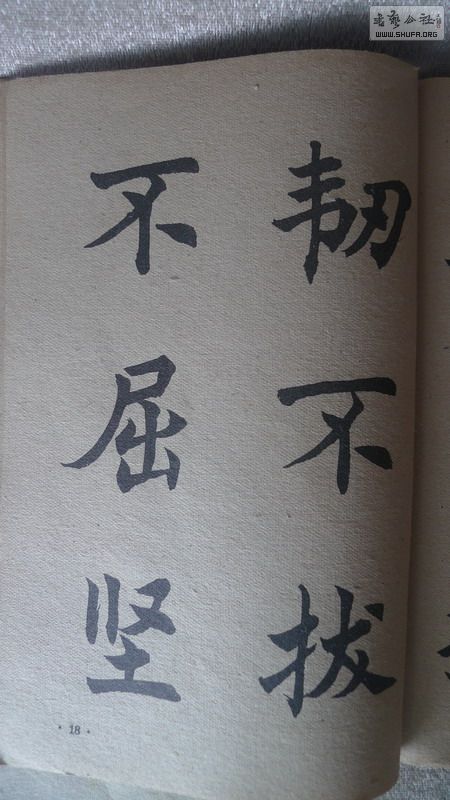 韧不拔
不屈坚
·18·
书艺公社
WWW.SHUFA.ORG